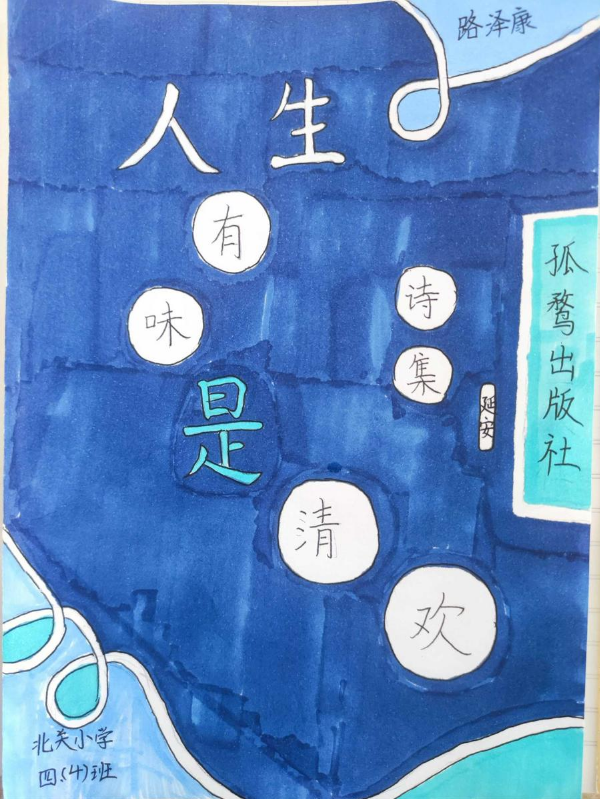 路泽康
人生
有
味
是
清
欢
诗
集
延安
孤鹜出版社
北关小学
四(4)班